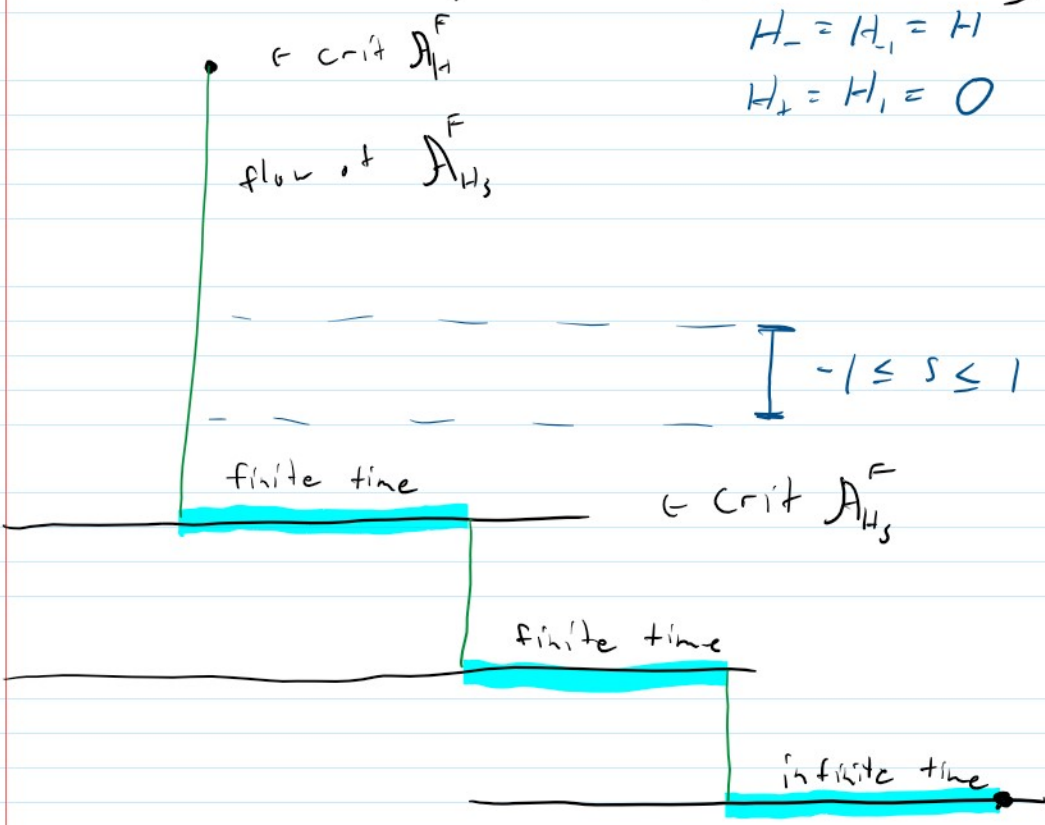 ∈ crit A_H^F
H_- = H_{-1} = H
H_+ = H_1 = 0
flow of A_{H_s}^F
-1 ≤ s ≤ 1
finite time
∈ crit A_{H_s}^F
finite time
infinite time